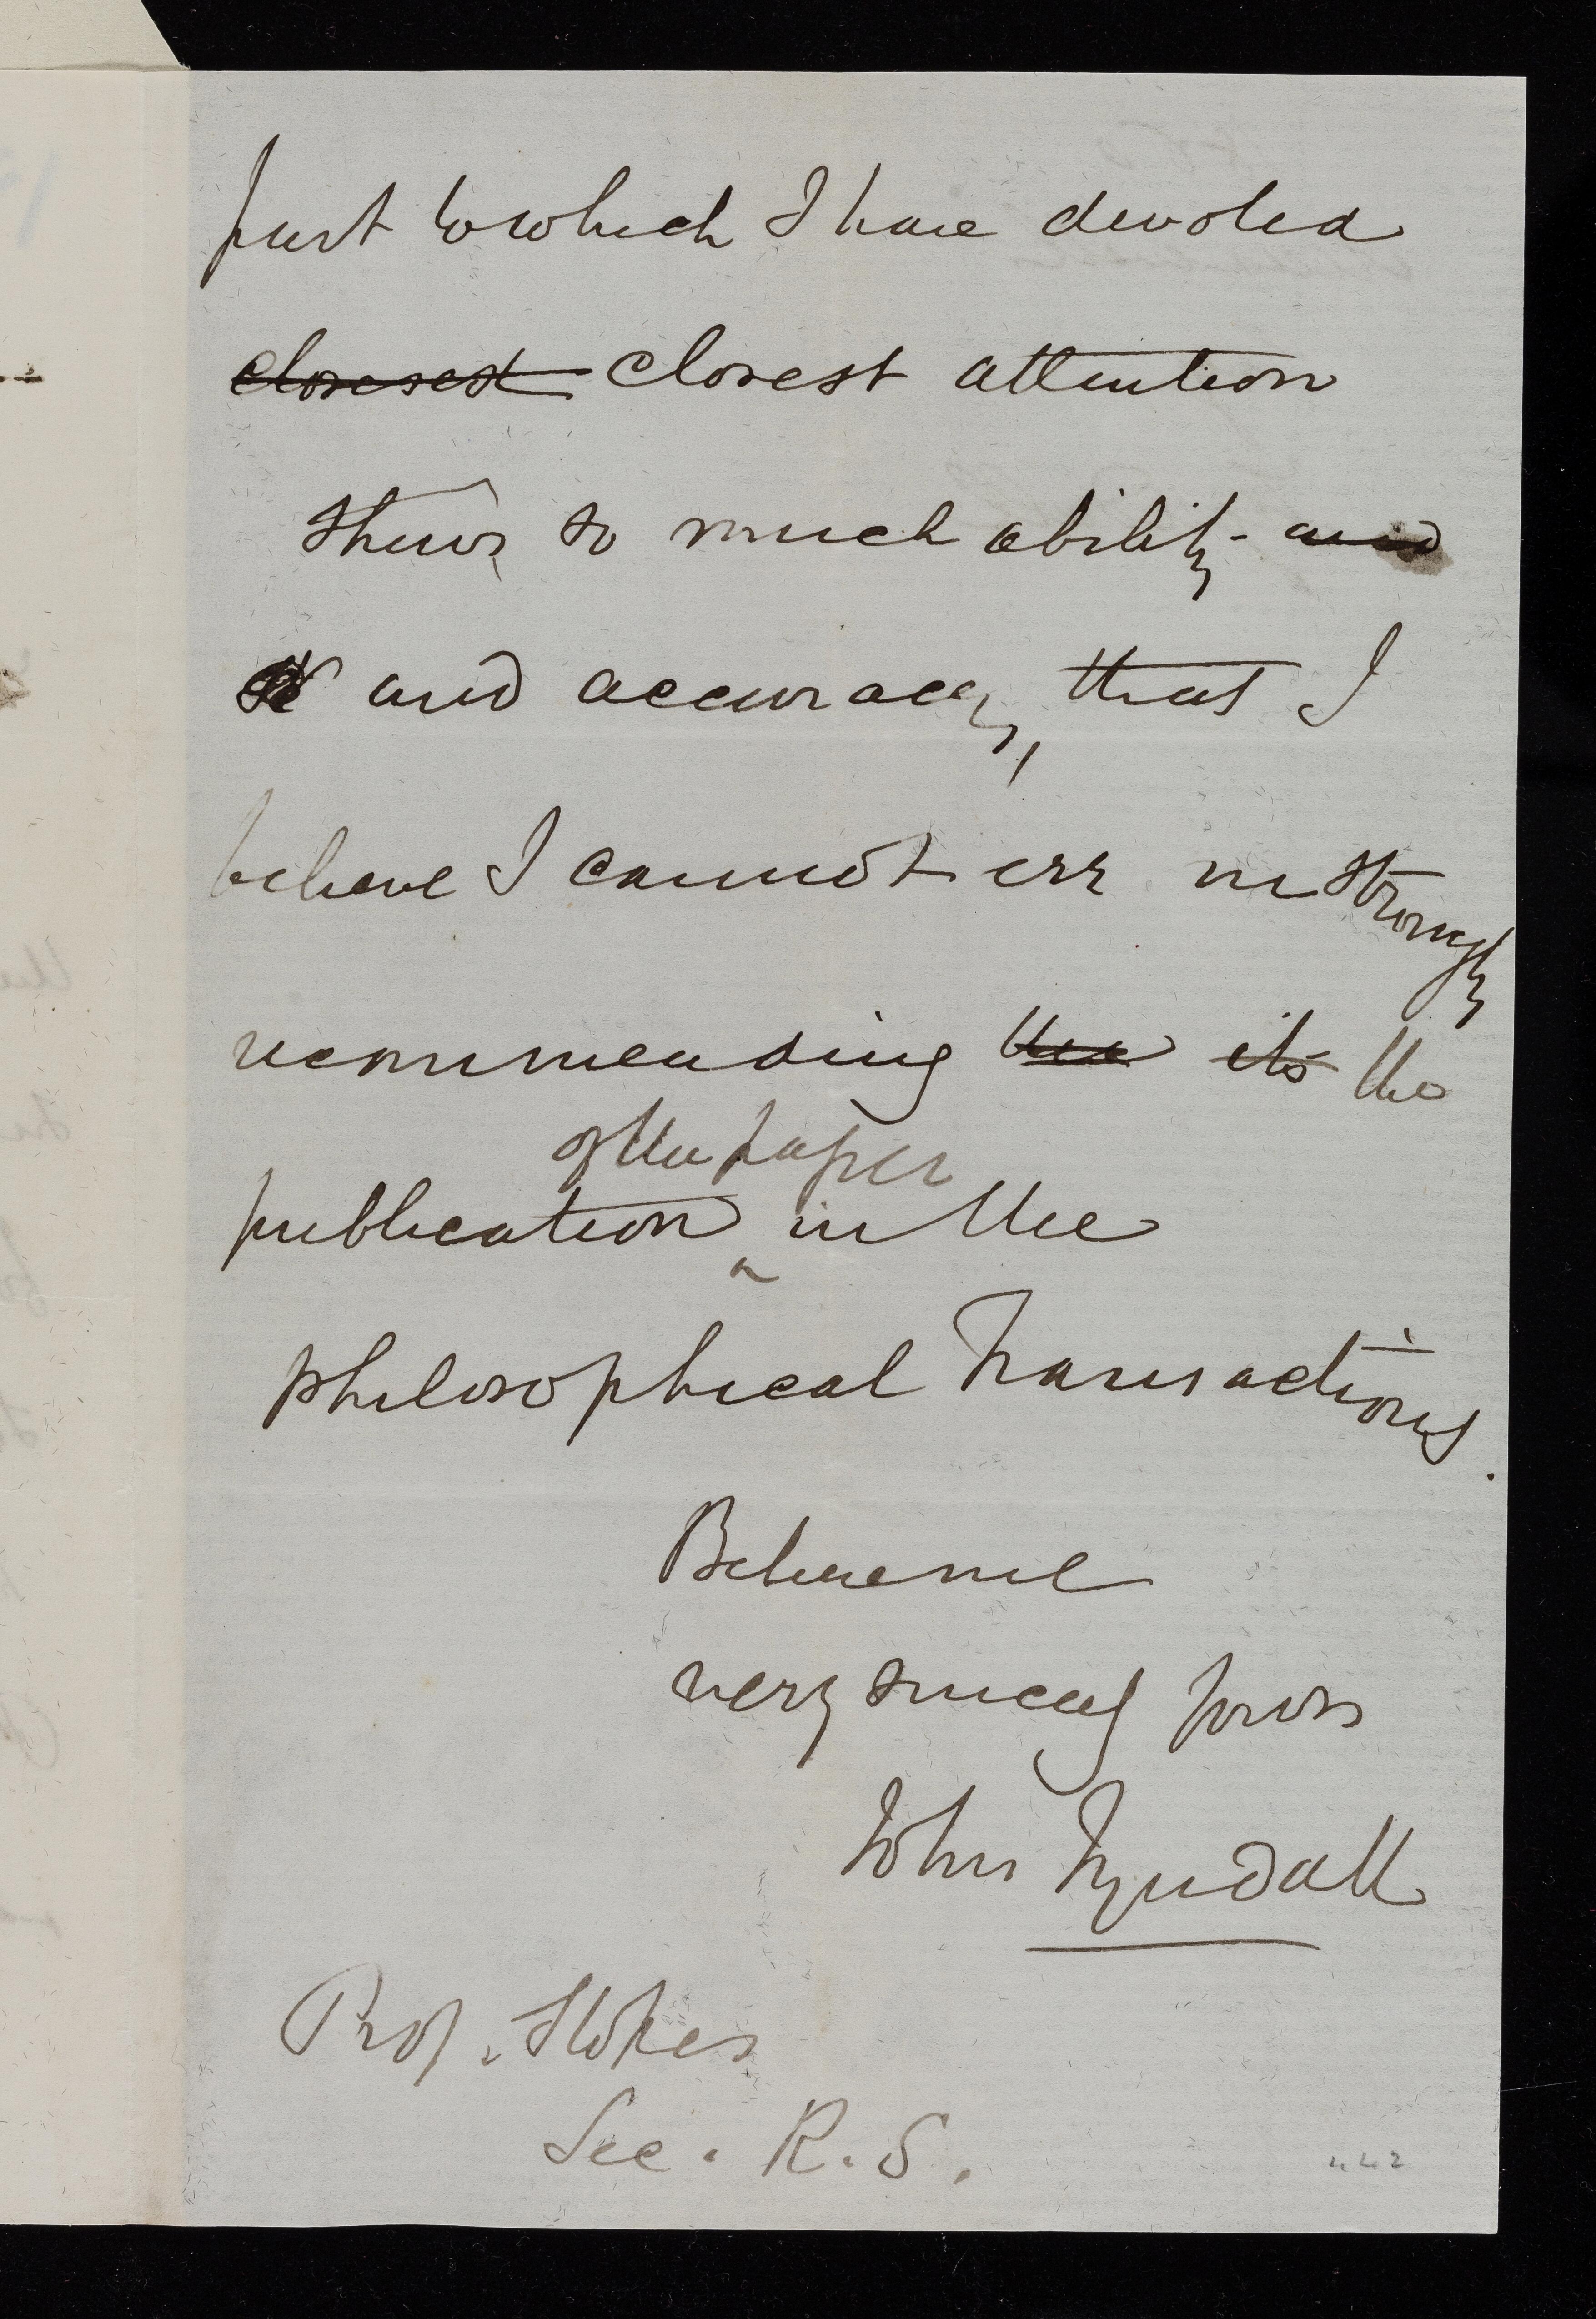 part to which I have devoted
closesest closest attention
shews so much ability and
and accuracy, that I
believe I cannot err in strongly
recommending the its the
of the paper
publication ^ in the
philosophical Transactions.
Believe me
very sincerely yours
John Tyndall
Prof. Stokes
Sec. R. S.
442